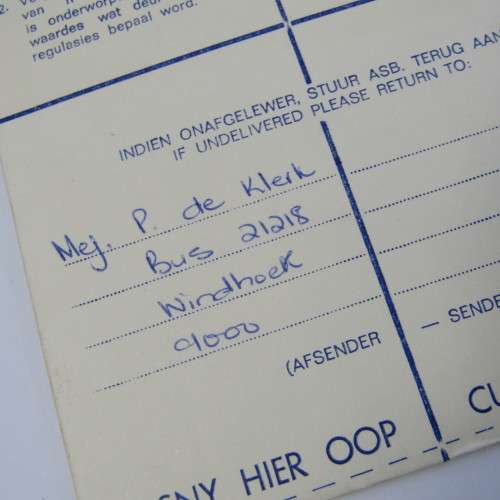 2.
van
is onderworp
waardes wat deur
regulasies bepaal word.
INDIEN ONAFGELEWER, STUUR ASB. TERUG AAN
IF UNDELIVERED PLEASE RETURN TO:
Mej. P. de Klerk
Bus 21218
Windhoek
9000
(AFSENDER — SENDE
NY HIER OOP
CU